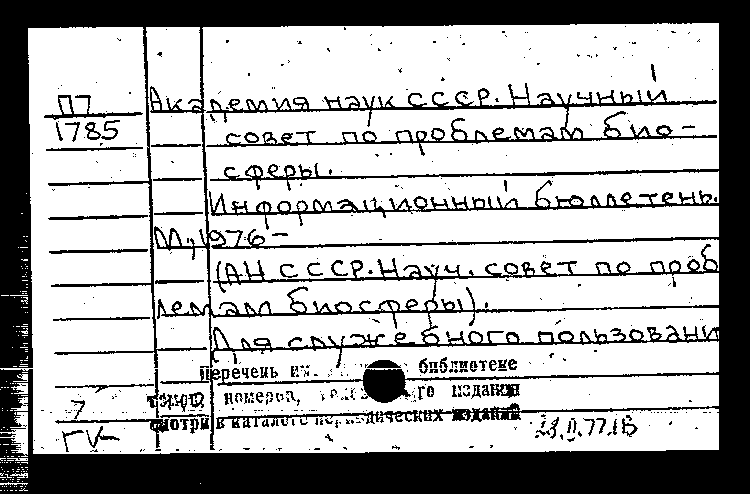 П7
1785
Академия наук СССР. Научный
совет по проблемам био-
сферы.
Информационный бюллетень.
М., 1976-
(АН СССР. Науч. совет по проб
лемам биосферы).
Для служебного пользовани
Перечень библиотеке
номеров, го издания
смотри в каталоге периодических изданий
7